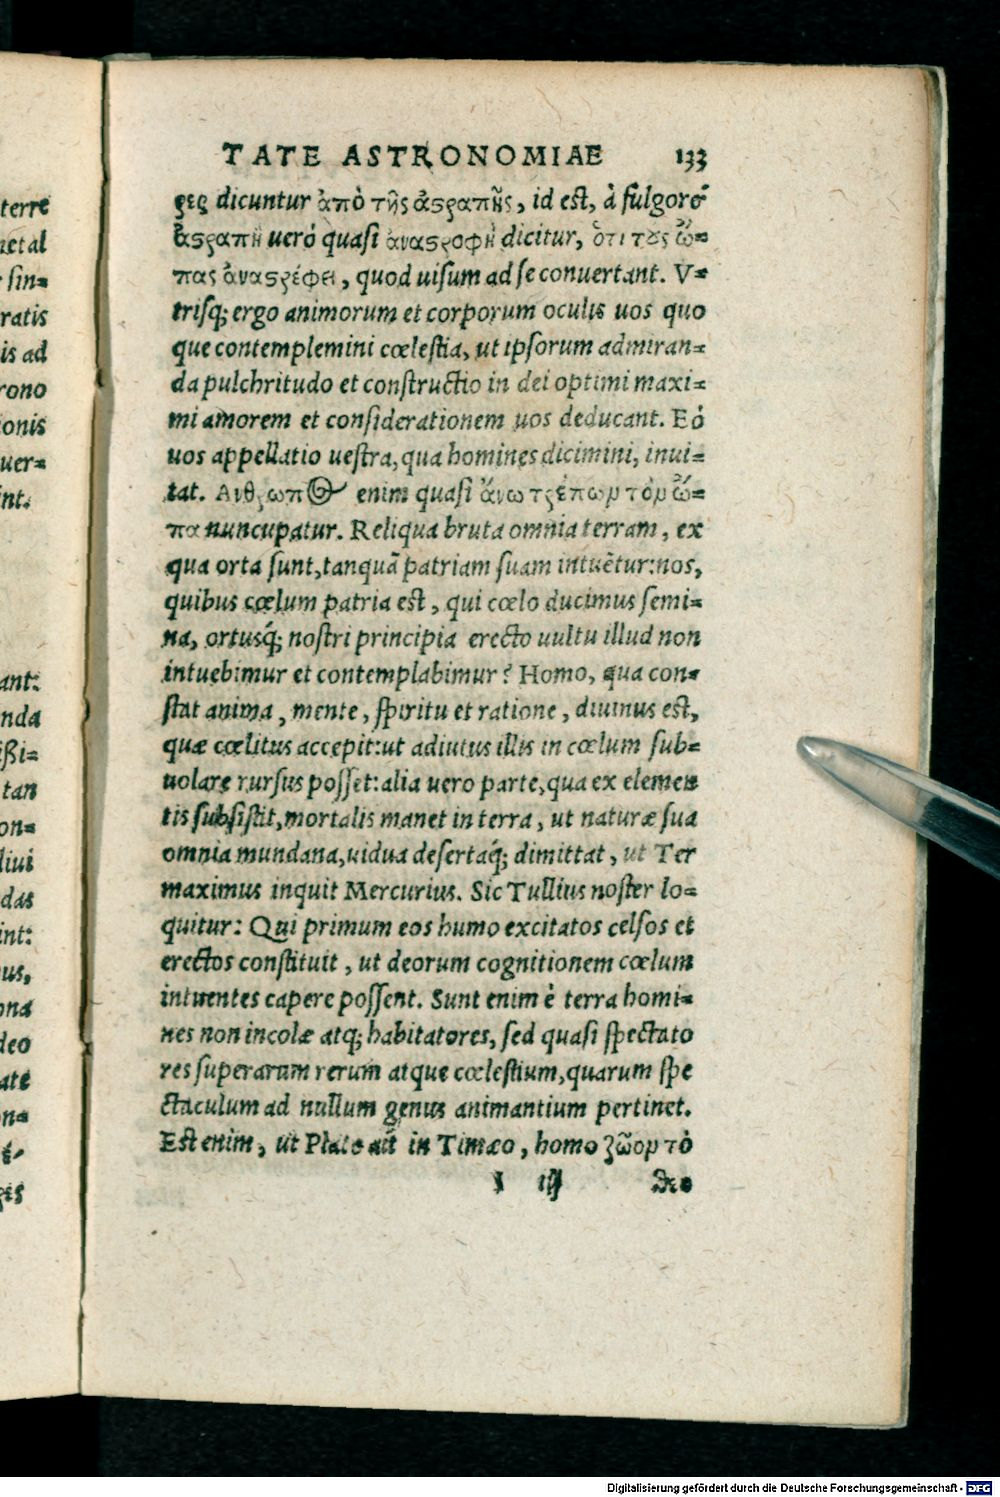 terre
net al
sin=
ratis
is ad
rono
ionis
uer=
int.
ant:
nda
ißi=
tan
on=
diui
das
int:
us,
ona
deo
ate
n=
TATE ASTRONOMIAE 133
ρες dicuntur ἀπὸ τῆς ἀςραπῆς, id est, à fulgorē
ἀςραπὴ uerò quasi ἀναςροφὴ dicitur, ὁτι τοὺς ὦ=
πας ἀναςρέφει, quod uisum ad se conuertant. V=
trisq; ergo animorum et corporum oculis uos quo
que contemplemini cœlestia, ut ipsorum admiran=
da pulchritudo et constructio in dei optimi maxi=
mi amorem et considerationem uos deducant. Eò
uos appellatio uestra, qua homines dicimini, inui=
tat. Ανθρωπος enim quasi ἄνω τρέπωρ τὸρ ὦ=
πα nuncupatur. Reliqua bruta omnia terram, ex
qua orta sunt, tanquā patriam suam intuētur: nos,
quibus cœlum patria est, qui cœlo ducimus semi=
na, ortusq́; nostri principia erecto uultu illud non
intuebimur et contemplabimur? Homo, qua con=
stat anima, mente, spiritu et ratione, diuinus est,
quæ cœlitus accepit: ut adiutus illis in cœlum sub=
uolare rursus posset: alia uero parte, qua ex elemen
tis subsistit, mortalis manet in terra, ut naturæ sua
omnia mundana, uidua desertaq́; dimittat, ut Ter
maximus inquit Mercurius. Sic Tullius noster lo=
quitur: Qui primum eos humo excitatos celsos et
erectos constituit, ut deorum cognitionem cœlum
intuentes capere possent. Sunt enim è terra homi=
nes non incolæ atq; habitatores, sed quasi spectato
res superarum rerum atque cœlestium, quarum spe
ctaculum ad nullum genus animantium pertinet.
Est enim, ut Plato ait in Timæo, homo ζῶορ τὸ
I iij
Digitalisierung gefördert durch die Deutsche Forschungsgemeinschaft - DFG